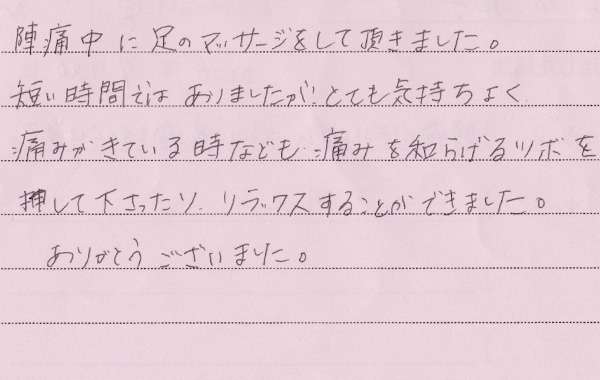 陣痛中に足のマッサージをして頂きました。
短い時間ではありましたが、とても気持ちよく
痛みがきている時なども痛みを和らげるツボを
押して下さったり、リラックスすることができました。
ありがとうございました。